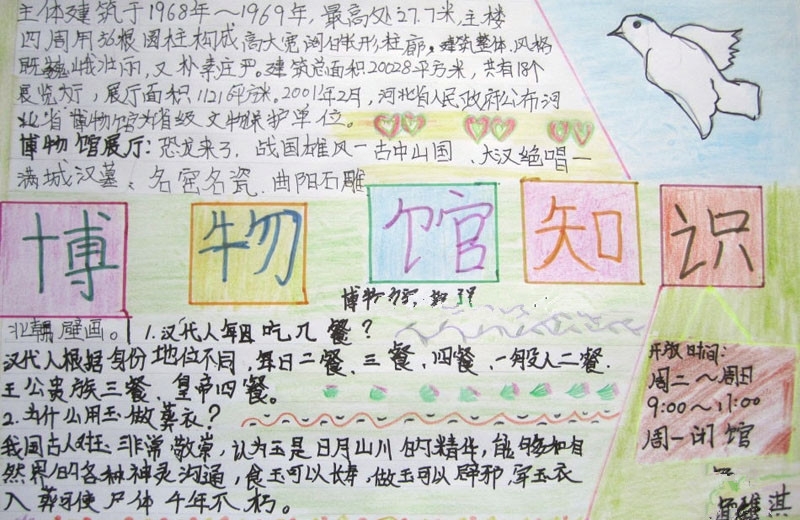 主体建筑于1968年～1969年，最高处27.7米，主楼
四周用根圆柱构成高大宽阔的形柱廊，建筑整体风格
既巍峨壮雨，又朴素庄严。建筑总面积20028平方米，共有18个
展览大厅，展厅面积1121平方米。2001年2月，河北省人民政府公布河
北省博物馆为省级文物保护单位。
博物馆展厅：恐龙来了、战国雄风—古中山国、大汉绝唱—
满城汉墓、名窑名瓷、曲阳石雕
博物馆知识
北朝壁画。
1.汉代人每日吃几餐？
汉代人根据身份地位不同，每日二餐、三餐、四餐、一般人二餐.
王公贵族三餐、皇帝四餐。
2.为什么用玉做葬衣？
我国古人对玉非常敬崇，认为玉是日月山川的精华，能够和自
然界的各种神灵沟通，食玉可以长寿，做玉可以辟邪，穿玉衣
入葬可使尸体千年不朽。
开放时间：
周二～周日
9:00～17:00
周一闭馆